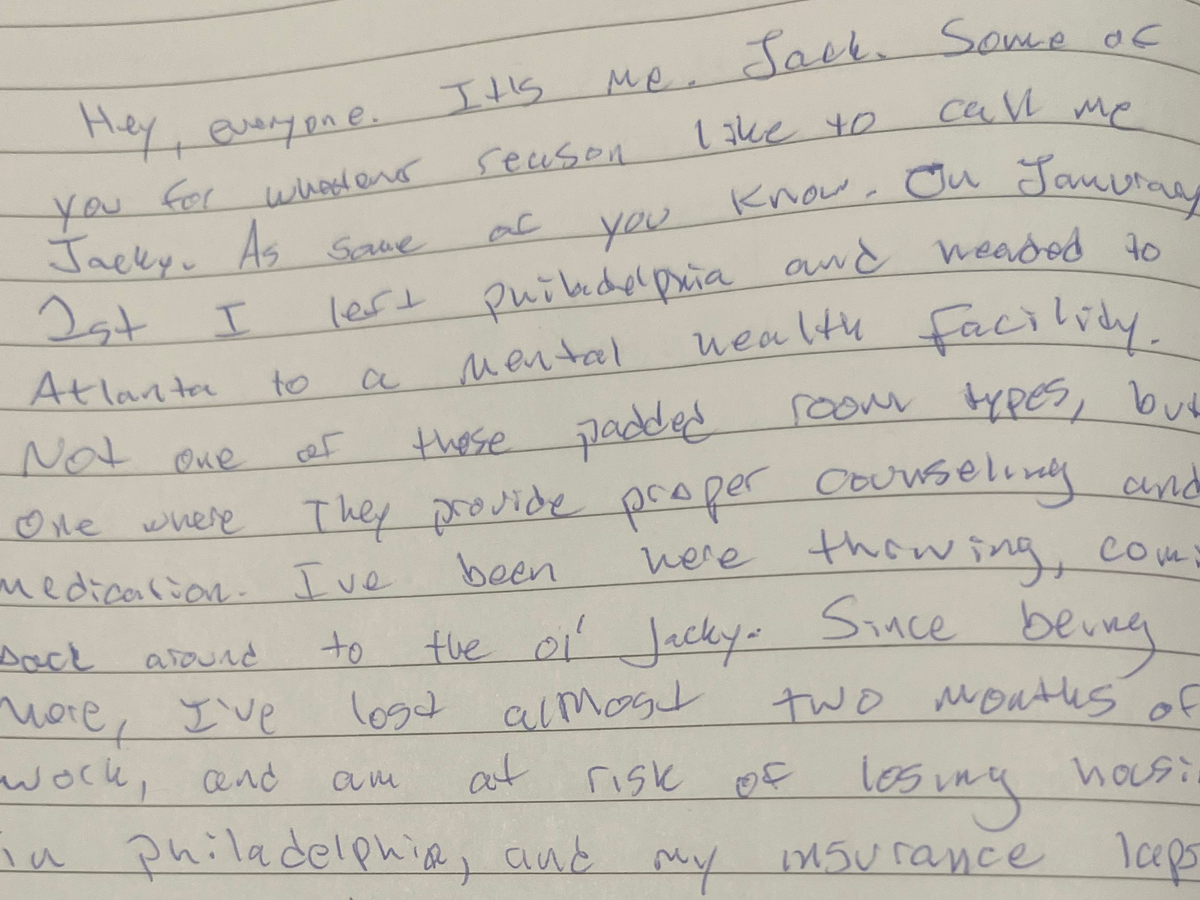 Hey, everyone. It's me. Jack. Some of
you for whatever reason like to call me
Jacky. As some of you know. On January
1st I left Philadelphia and headed to
Atlanta to a mental health facility.
Not one of those padded room types, but
one where They provide proper counseling and
medication. I've been here thowing, comi
back around to the ol' Jacky. Since being
here, I've lost almost two months of
work, and am at risk of losing housi
in philadelphia, and my insurance laps